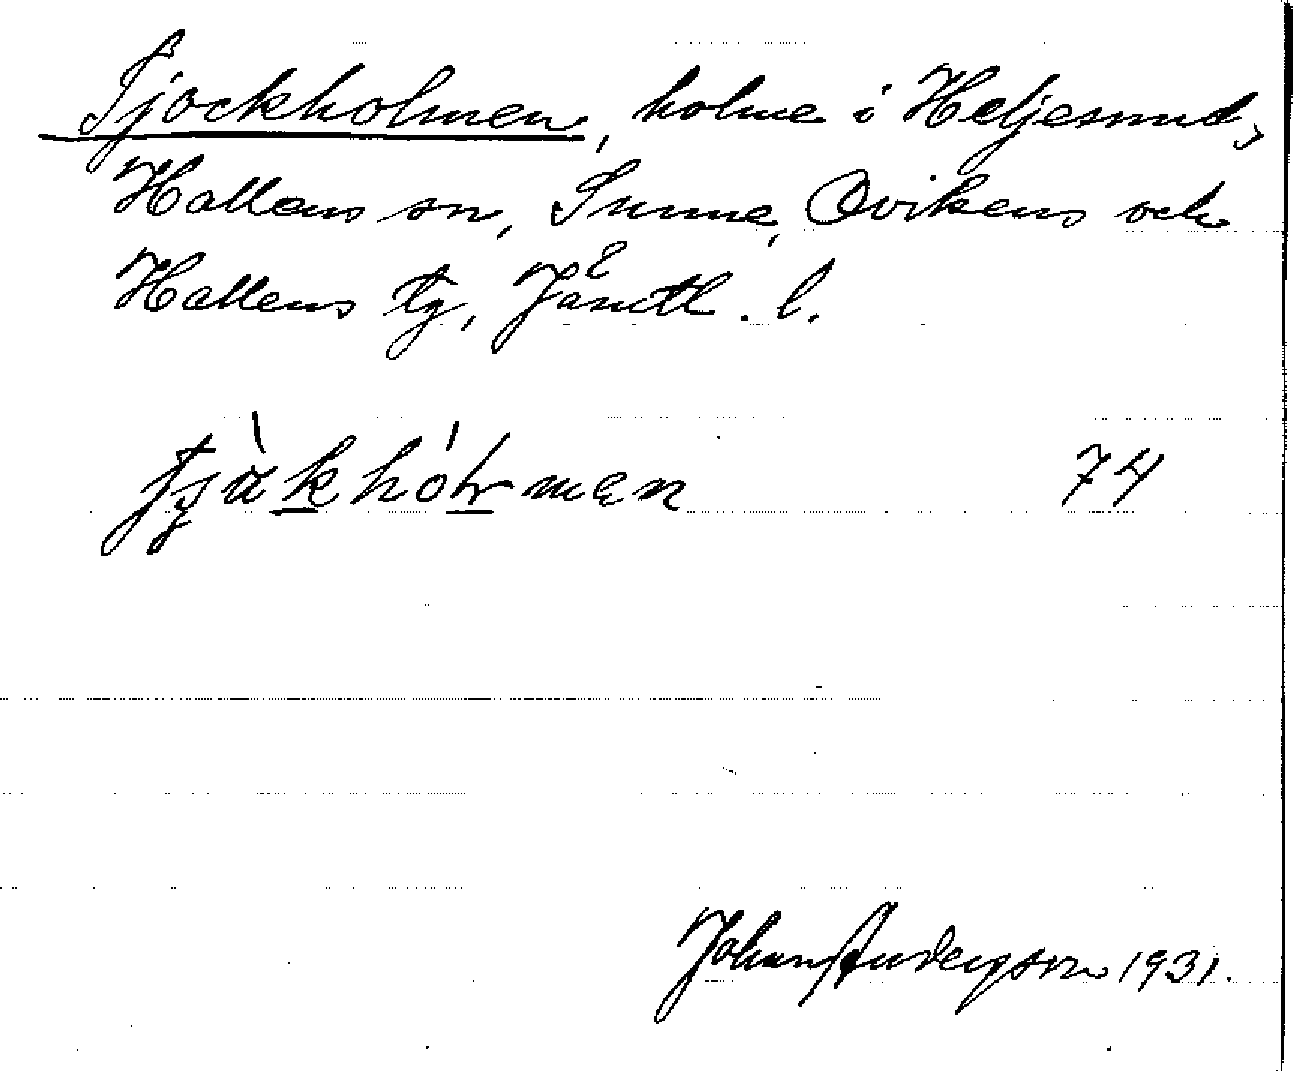 Tjockholmen, holme i Heljesund,
Hallens sn, Sunne, Ovikens och
Hallens tg, Jämtl. l.
74
Johan Anderson 1931.